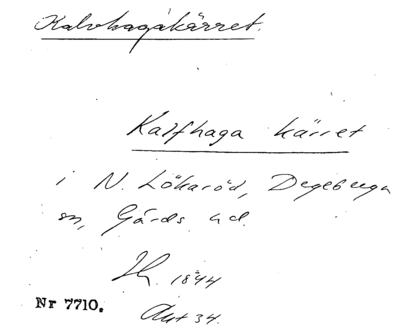 Kalvhagakärret.
Kalfhaga kärret
i N. Lökaröd, Degeberga
sn, Gärds hd.
1844
Akt 34.
Nr 7710.